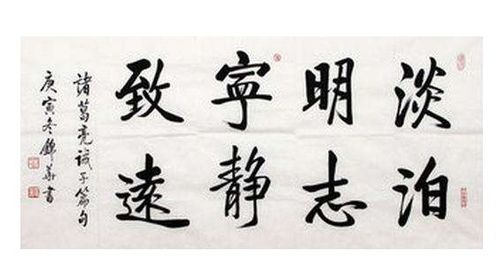 淡泊
明志
寧静
致遠
諸葛亮诫子篇句
庚寅冬錦華書